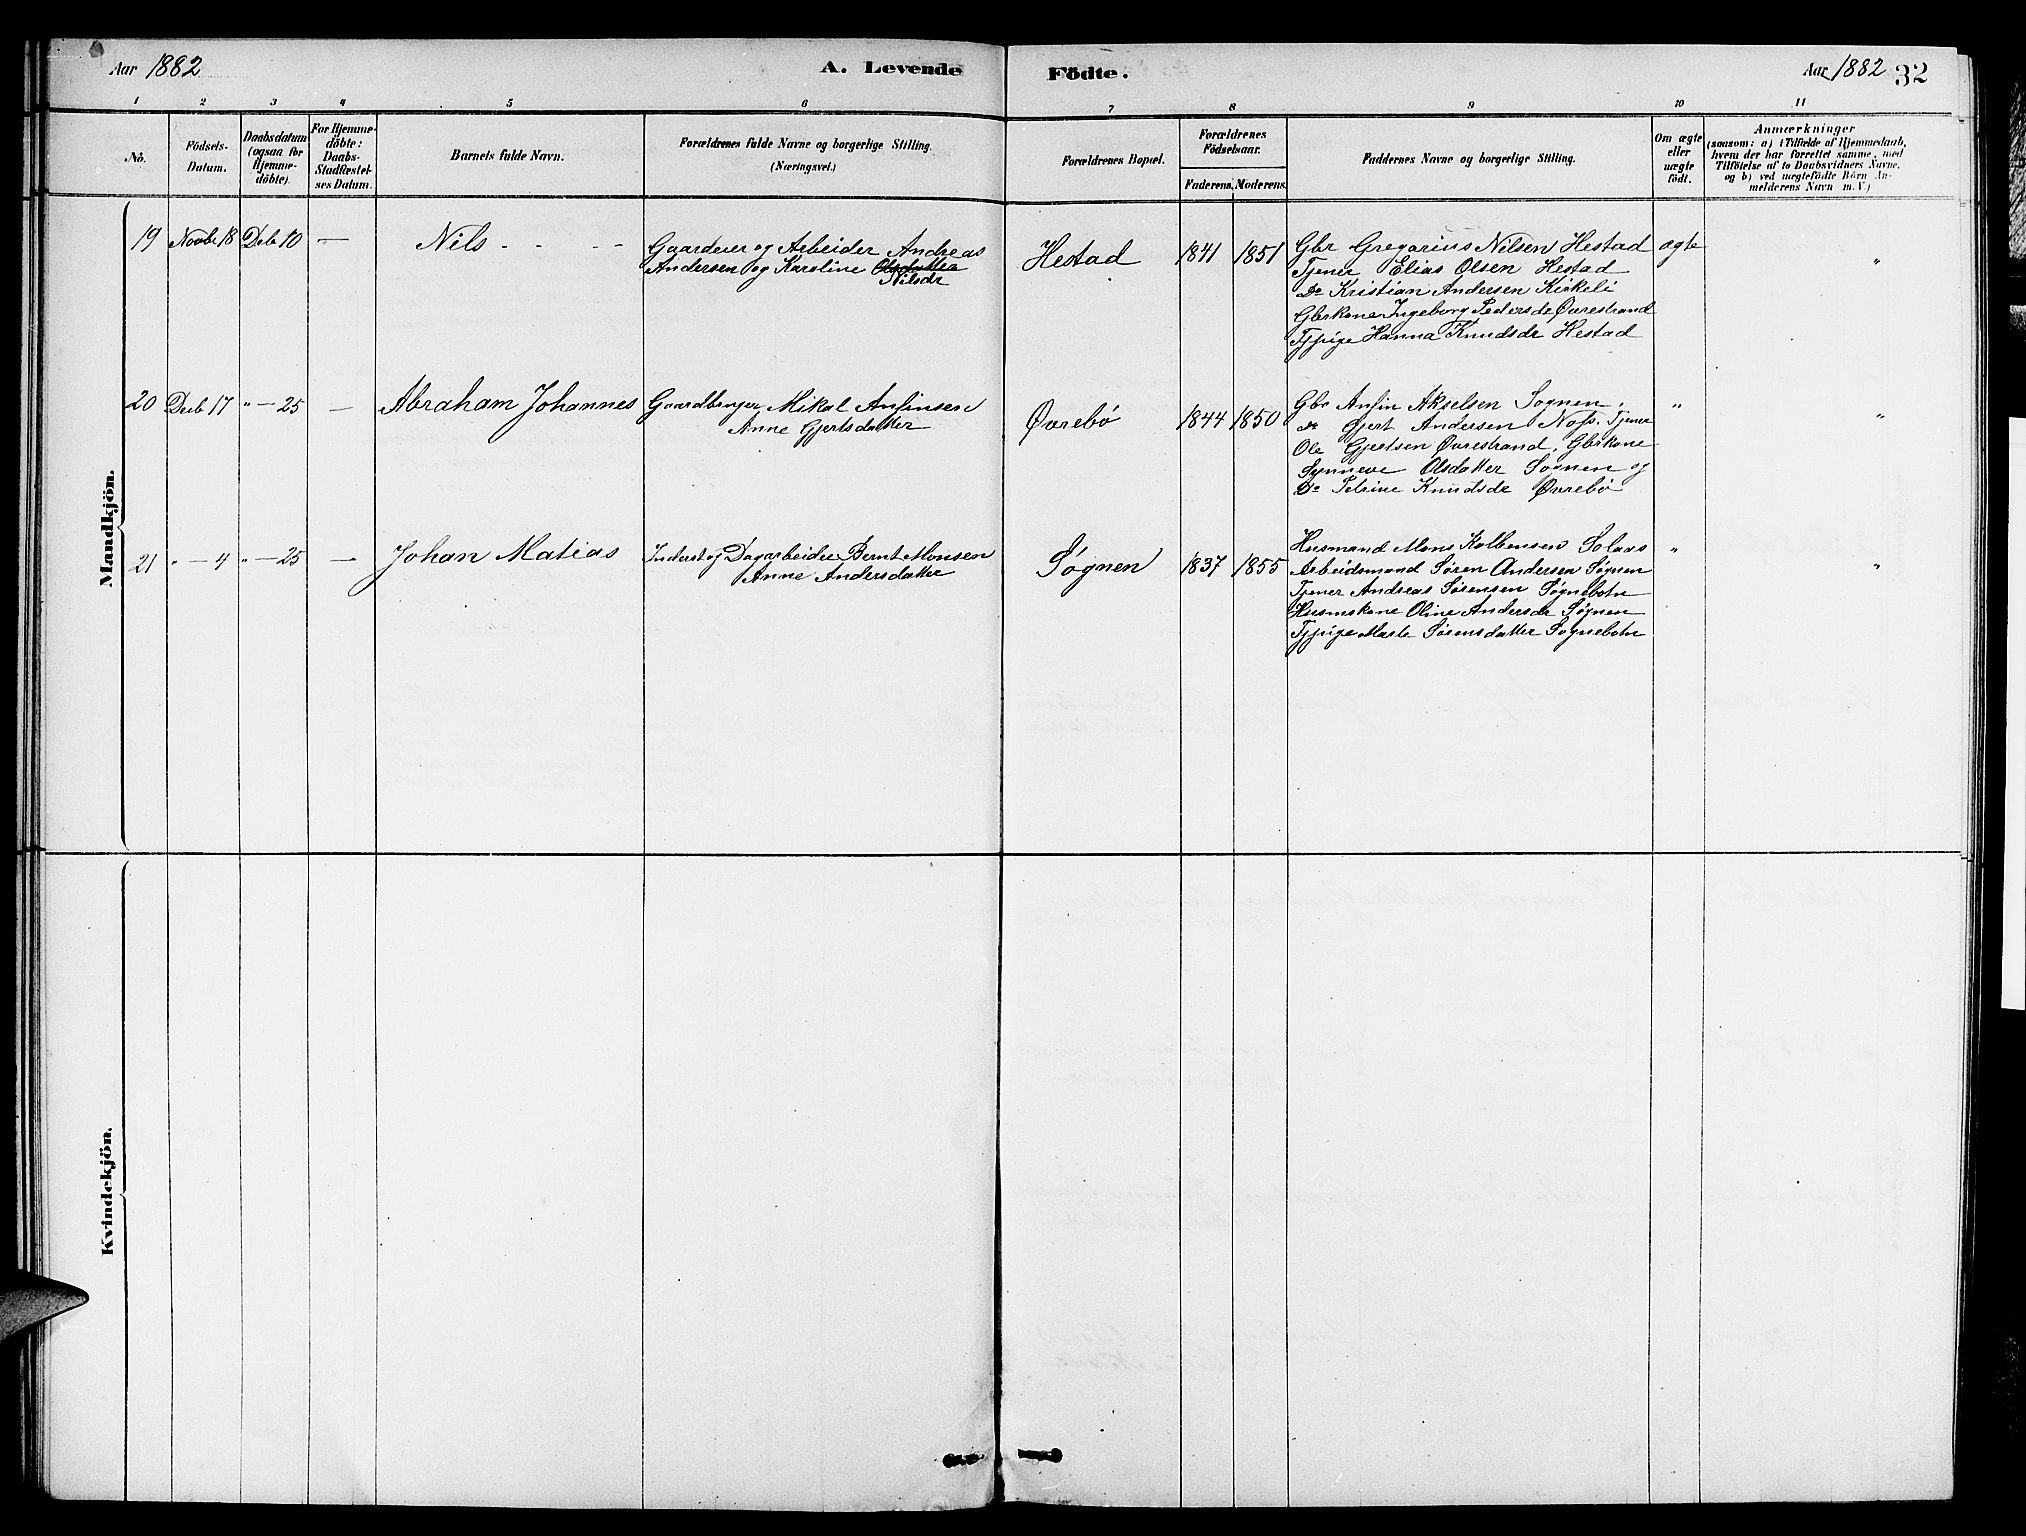 Aar 1882
A. Levende Födte.
Aar 1882 32
1 2 3 4 5 6 7 8 9 10 11
No.
Födsels-
Datum.
Daabsdatum
(ogsaa for
Hjemme-
döbte).
For Hjemme-
döbte:
Daabs-
Stadfæstel-
ses Datum.
Barnets fulde Navn.
Forældrenes fulde Navne og borgerlige Stilling.
(Næringsvei.)
Forældrenes Bopæl.
Forældrenes
Födselsaar.
Faderens. Moderens.
Faddernes Navne og borgerlige Stilling.
Om ægte
eller
uægte
födt.
Anmærkninger
(saasom: a) i Tilfælde af Hjemmedaab,
hvem der har forrettet samme, med
Tilföielse af to Daabsvidners Navne.
og b) ved uægtefödte Börn An-
melderens Navn m. V.)
Mandkjön.
19 Novbr 18 Decb 10 — Nils - - -
Gaardeier og Arbeider Andreas
Andersen og Karoline Olsdatter
Nilsdr
Hestad 1841 1851
Gbr Gregorius Nilsen Hestad
Tjener Elias Olsen Hestad
Do Kristian Andersen Kirkeli
Gbrkone Ingeborg Pedersdr Øvrestrand
Tjpige Hanna Knudsdr Hestad
ægte "
20 Decb 17 " — 25 — Abraham Johannes
Gaardbruger Mikal Anfinsen
Anne Gjertsdatter
Øvrebø 1844 1850
Gbr Anfin Akselsen Sognen.
Do Gjert Andersen Tjener
Ole Gjertsen Øvrestrand, Gbrkone
Synneve Olsdatter Søgnen og
Do Petrine Knudsdr Øvrebø
" "
21 " — 4 " — 25 — Johan Matias
Inderst og Dagarbeider Bernt Monsen
Anne Andersdatter
Søgnen 1837 1855
Husmand Mons Kolbensen Solaas
Arbeidsmand Søren Andersen Søgnen
Tjener Andreas Sørensen Søgnebotn
Husmskone Oline Andersdr Søgnen
Tjpige Marte Sørensdatter Sognebotn
" "
Kvindekjön.